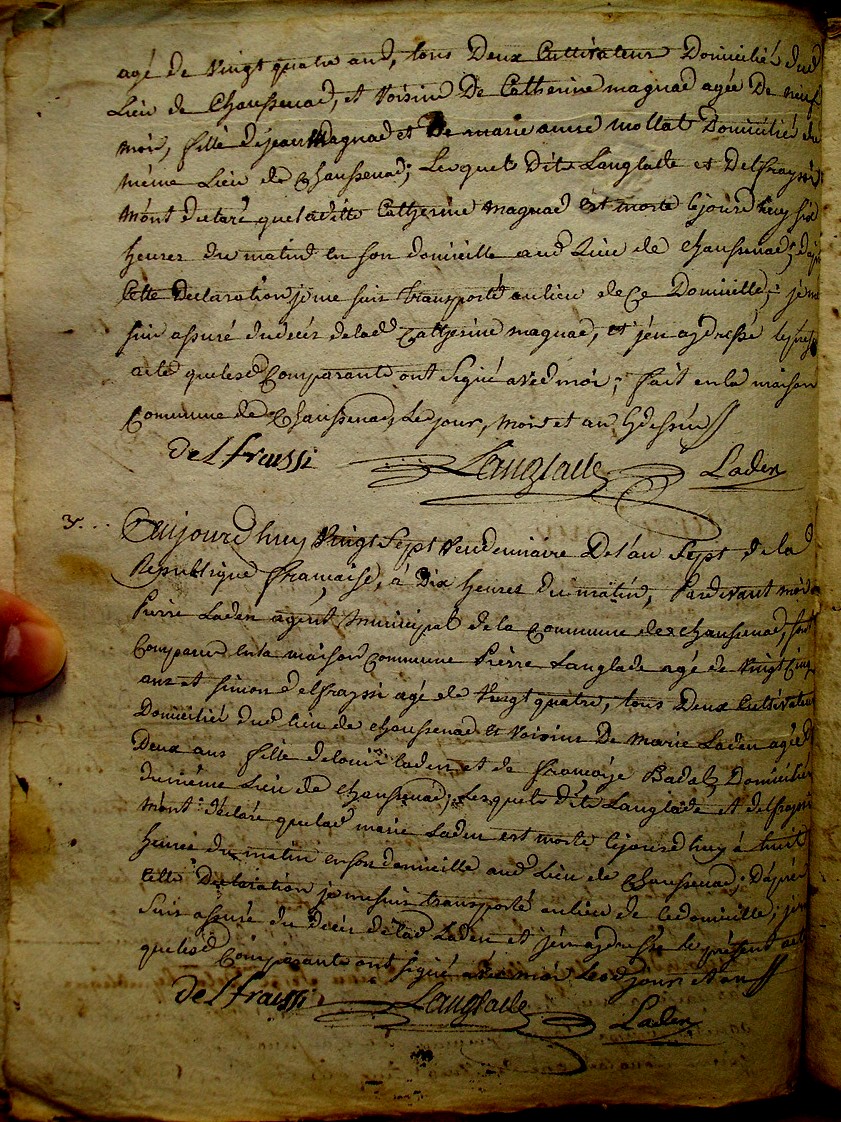 agé de vingt quatre ans, tous Deux Cultivateurs Domiciliés dud
Lieu de Chaussenac, et Voisins De Catherine magnac agée De neuf
mois, fille de jean Magnac et De marie anne mollat Domiciliés du
même Lieu de Chaussenac; Lesquels Dits Langlade et Delfrayssi
m'ont declaré que ladite Catherine magnac est morte cejourd'huy six
heures du matin en son domicille aud Lieu de chaussenac; d'après
Cette Declaration je me suis transporté au lieu de Ce Domicille; je me
suis assuré du decés de lad Catherine magnac, et j'en ay dressé le pres
acte que lesd Comparants ont signé avec moi; fait en la maison
Commune de Chaussenac, Le jour, mois et an
delfraissi Langlade Laden
3e
aujourd'huy Vingt Sept Vendemiaire De l'an Sept de la
Republique française, à Dix heures du matin, Pardevant moi
Pierre Laden agent Municipal de la Commune de chaussenac, sont
Comparus en la maison Commune Pierre Langlade agé de Vingt Cinq
ans et simon delfrayssi agé de Vingt quatre, tous Deux Cultivateurs
Domiciliés dud lieu de chaussenac et Voisins De Marie Laden agée
Deux ans fille de louis laden et de françoise Badal Domiciliés
du même Lieu de chaussenac; Lesquels dits Langlade et delfrayssi
M'ont déclaré que lad marie Laden est morte cejourd'huy à huit
heures du matin en son domicille aud Lieu de Chaussenac; D'après
Cette Declaration je me suis transporté au lieu de ce domicille; je me
suis assuré du Decés de lad Laden et j'en ay dressé le présent acte
que lesd Comparants ont signé avec moi Lesd jour et an
delfraissi Langlade Laden